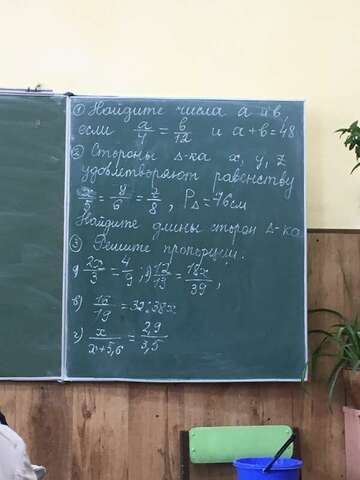 ① Найдите числа a и b,
если a/4 = b/12 и a+b=48
② Стороны Δ-ка x, y, z
удовлетворяют равенству
x/5 = y/6 = z/8, P_Δ=76см
Найдите длины сторон Δ-ка
③ Решите пропорции.
2x/3 = 4/9; 12/13 = 18x/39;
в) 16/19 = 32:38x
г) x/(x+5,6) = 2,9/3,5